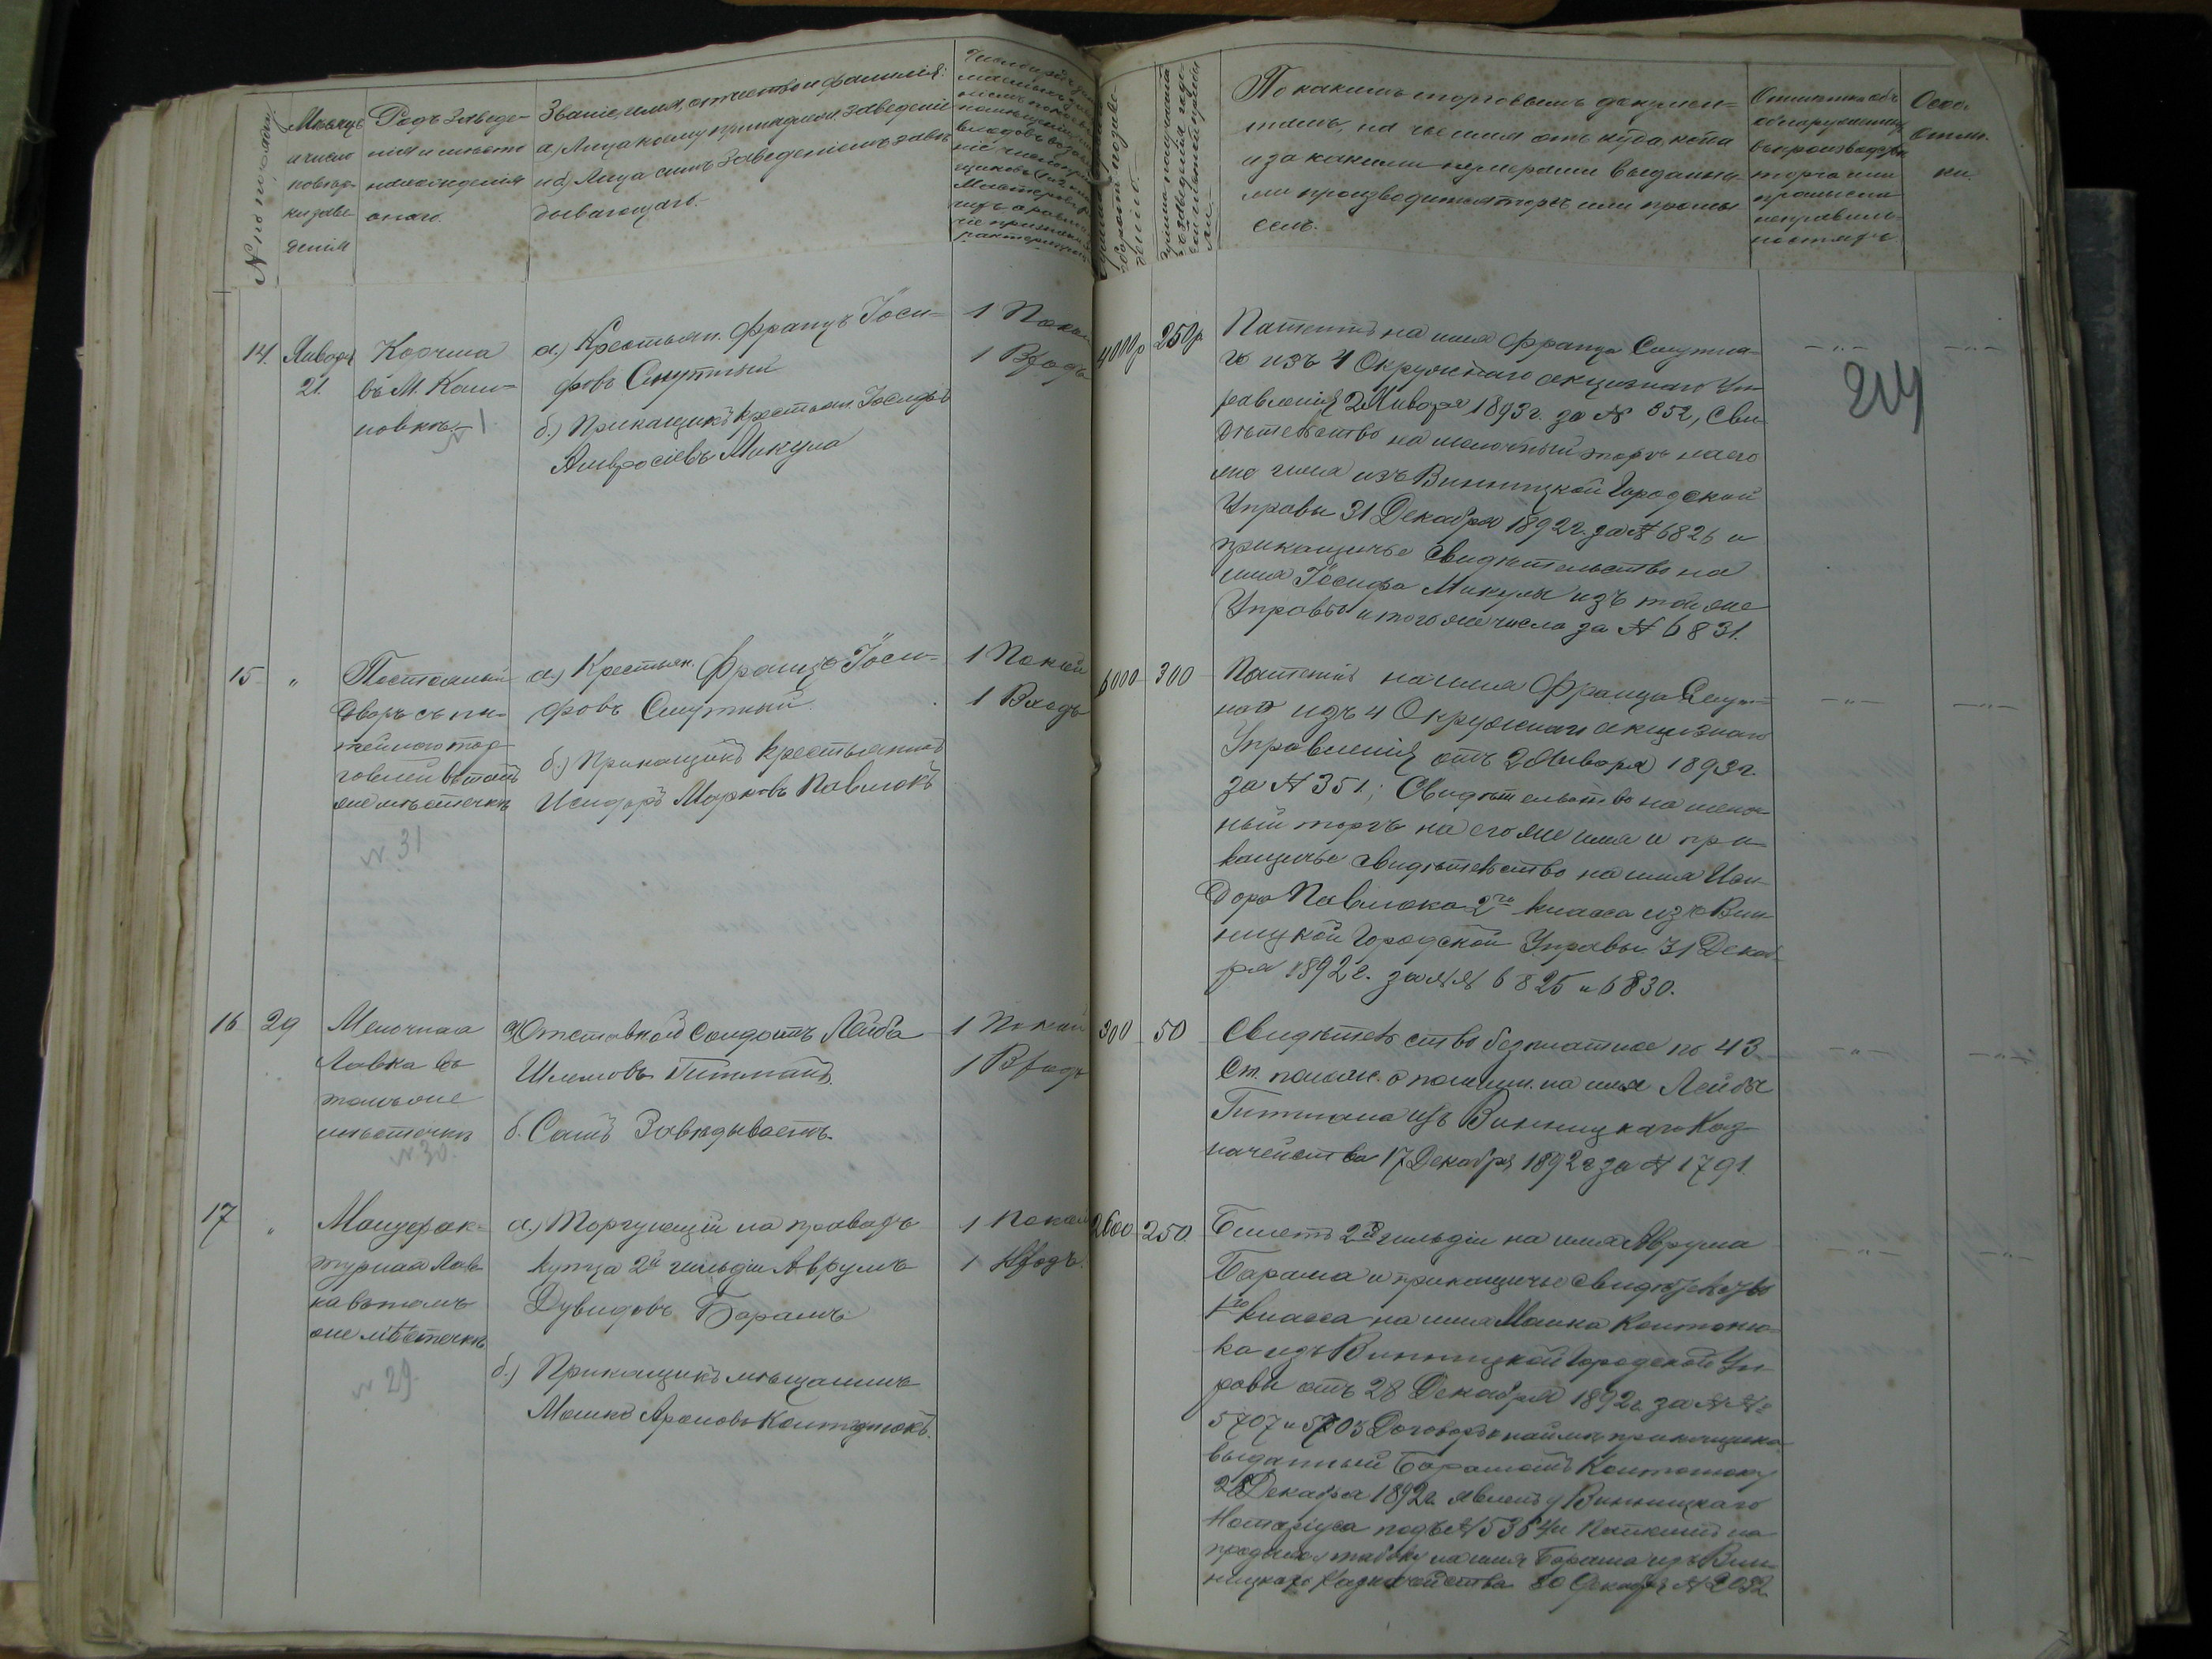 № по порядку
Мѣсяцъ
и число
повѣр-
ки заве-
денія
Родъ Заведе-
нія и мѣсто
нахожденія
онаго.
Званіе, имя, отчество и фамилія:
а) Лица кому принадлеж. заведеніе
и б) Лица симъ Заведеніемъ завѣ-
дывающаго.
По какимъ торговымъ докумен-
тамъ, на чье имя отъ куда, когда
и за какими нумерами выданны-
ми производится торгъ или промы
селъ.
Отмѣтка объ
обнаруженныхъ
въ производствѣ
торга или
промысла
неправиль-
ностяхъ.
Особ.
отмѣт.
ки.
14.
Января
21.
Корчма
въ М. Кали-
новкѣ.
№ 1
а.) Крестьян. Францъ Іоси-
фовъ Смутный
б.) Прикащикъ крестьян. Іосифъ
Амвросіевъ Микула
1 Покой
1 Входъ
4000р
250р
Патентъ на имя Франца Смутна-
го изъ 4 Окружнаго акцизнаго Уп-
равленія 2 Января 1893 г. за № 352, Сви-
дѣтельство на мелочный торгъ на его
же имя изъ Винницкой Городской
Управы 31 Декабря 1892 г. за № 6826 и
прикащичье свидѣтельство на
имя Іосифа Микулы изъ той же
Управы и того же числа за № 6831.
— „ —
— „ —
214
15
„
Постоялый
Дворъ съ пи-
тейною тор-
говлей въ томъ
же мѣстечкѣ
№ 31
а.) Крестьян. Францъ Іоси-
фовъ Смутный
б.) Прикащикъ Крестьянинъ
Исидоръ Марковъ Павлюкъ
1 Покой
1 Входъ
6000
300
Патентъ на имя Франца Смут-
наго изъ 4 Окружнаго акцизнаго
Управленія отъ 2 Января 1893 г.
за № 351; Свидѣтельство на мелоч-
ный торгъ на его же имя и при-
кащичье свидѣтельство на имя Иси-
дора Павлюка 2го класса изъ Вин-
ницкой Городской Управы 31 Декаб-
ря 1892 г. за №№ 6825 и 6830.
— „ —
— „ —
16
29
Мелочная
Лавка въ
томъ же
мѣстечкѣ
№ 30.
а) Отставной Солдатъ Лейба
Шлемовъ Гитманъ.
б. Самъ Завѣдываетъ.
1 Покой
1 Входъ
300
50
Свидѣтельство безплатное по 43
Ст. полож. о пошлин. на имя Лейбы
Гитмана изъ Винницкаго Каз-
начейства 17 Декабря 1892 г за № 1791.
— „ —
— „ —
17
„
Мануфак-
турная Лав-
ка въ томъ
же мѣстечкѣ
№ 29.
а.) Торгующій на правахъ
Купца 2й гильдіи Аврумъ
Дувидовъ Барамъ
б.) Прикащикъ мѣщанинъ
Мошко Ароновъ Колтонюкъ.
1 Покой
1 Входъ.
2600
250.
Билетъ 2й гильдіи на имя Аврума
Барама и прикащичье свидѣтельство
1го Класса на имя Мошка Колтоню-
ка изъ Винницкой Городской Уп-
равы отъ 28 Декабря 1892 г за №№
5707 и 5705 Договоръ о наймѣ прикащика
выданный Барамомъ Колтонюку
28 Декабря 1892 г. явленъ у Винницкаго
Нотаріуса подъ № и Патентъ на
продажу табаку на имя Барама изъ Вин-
ницкаго Казначейства 30 Декабр. № 2032
— „ —
— „ —